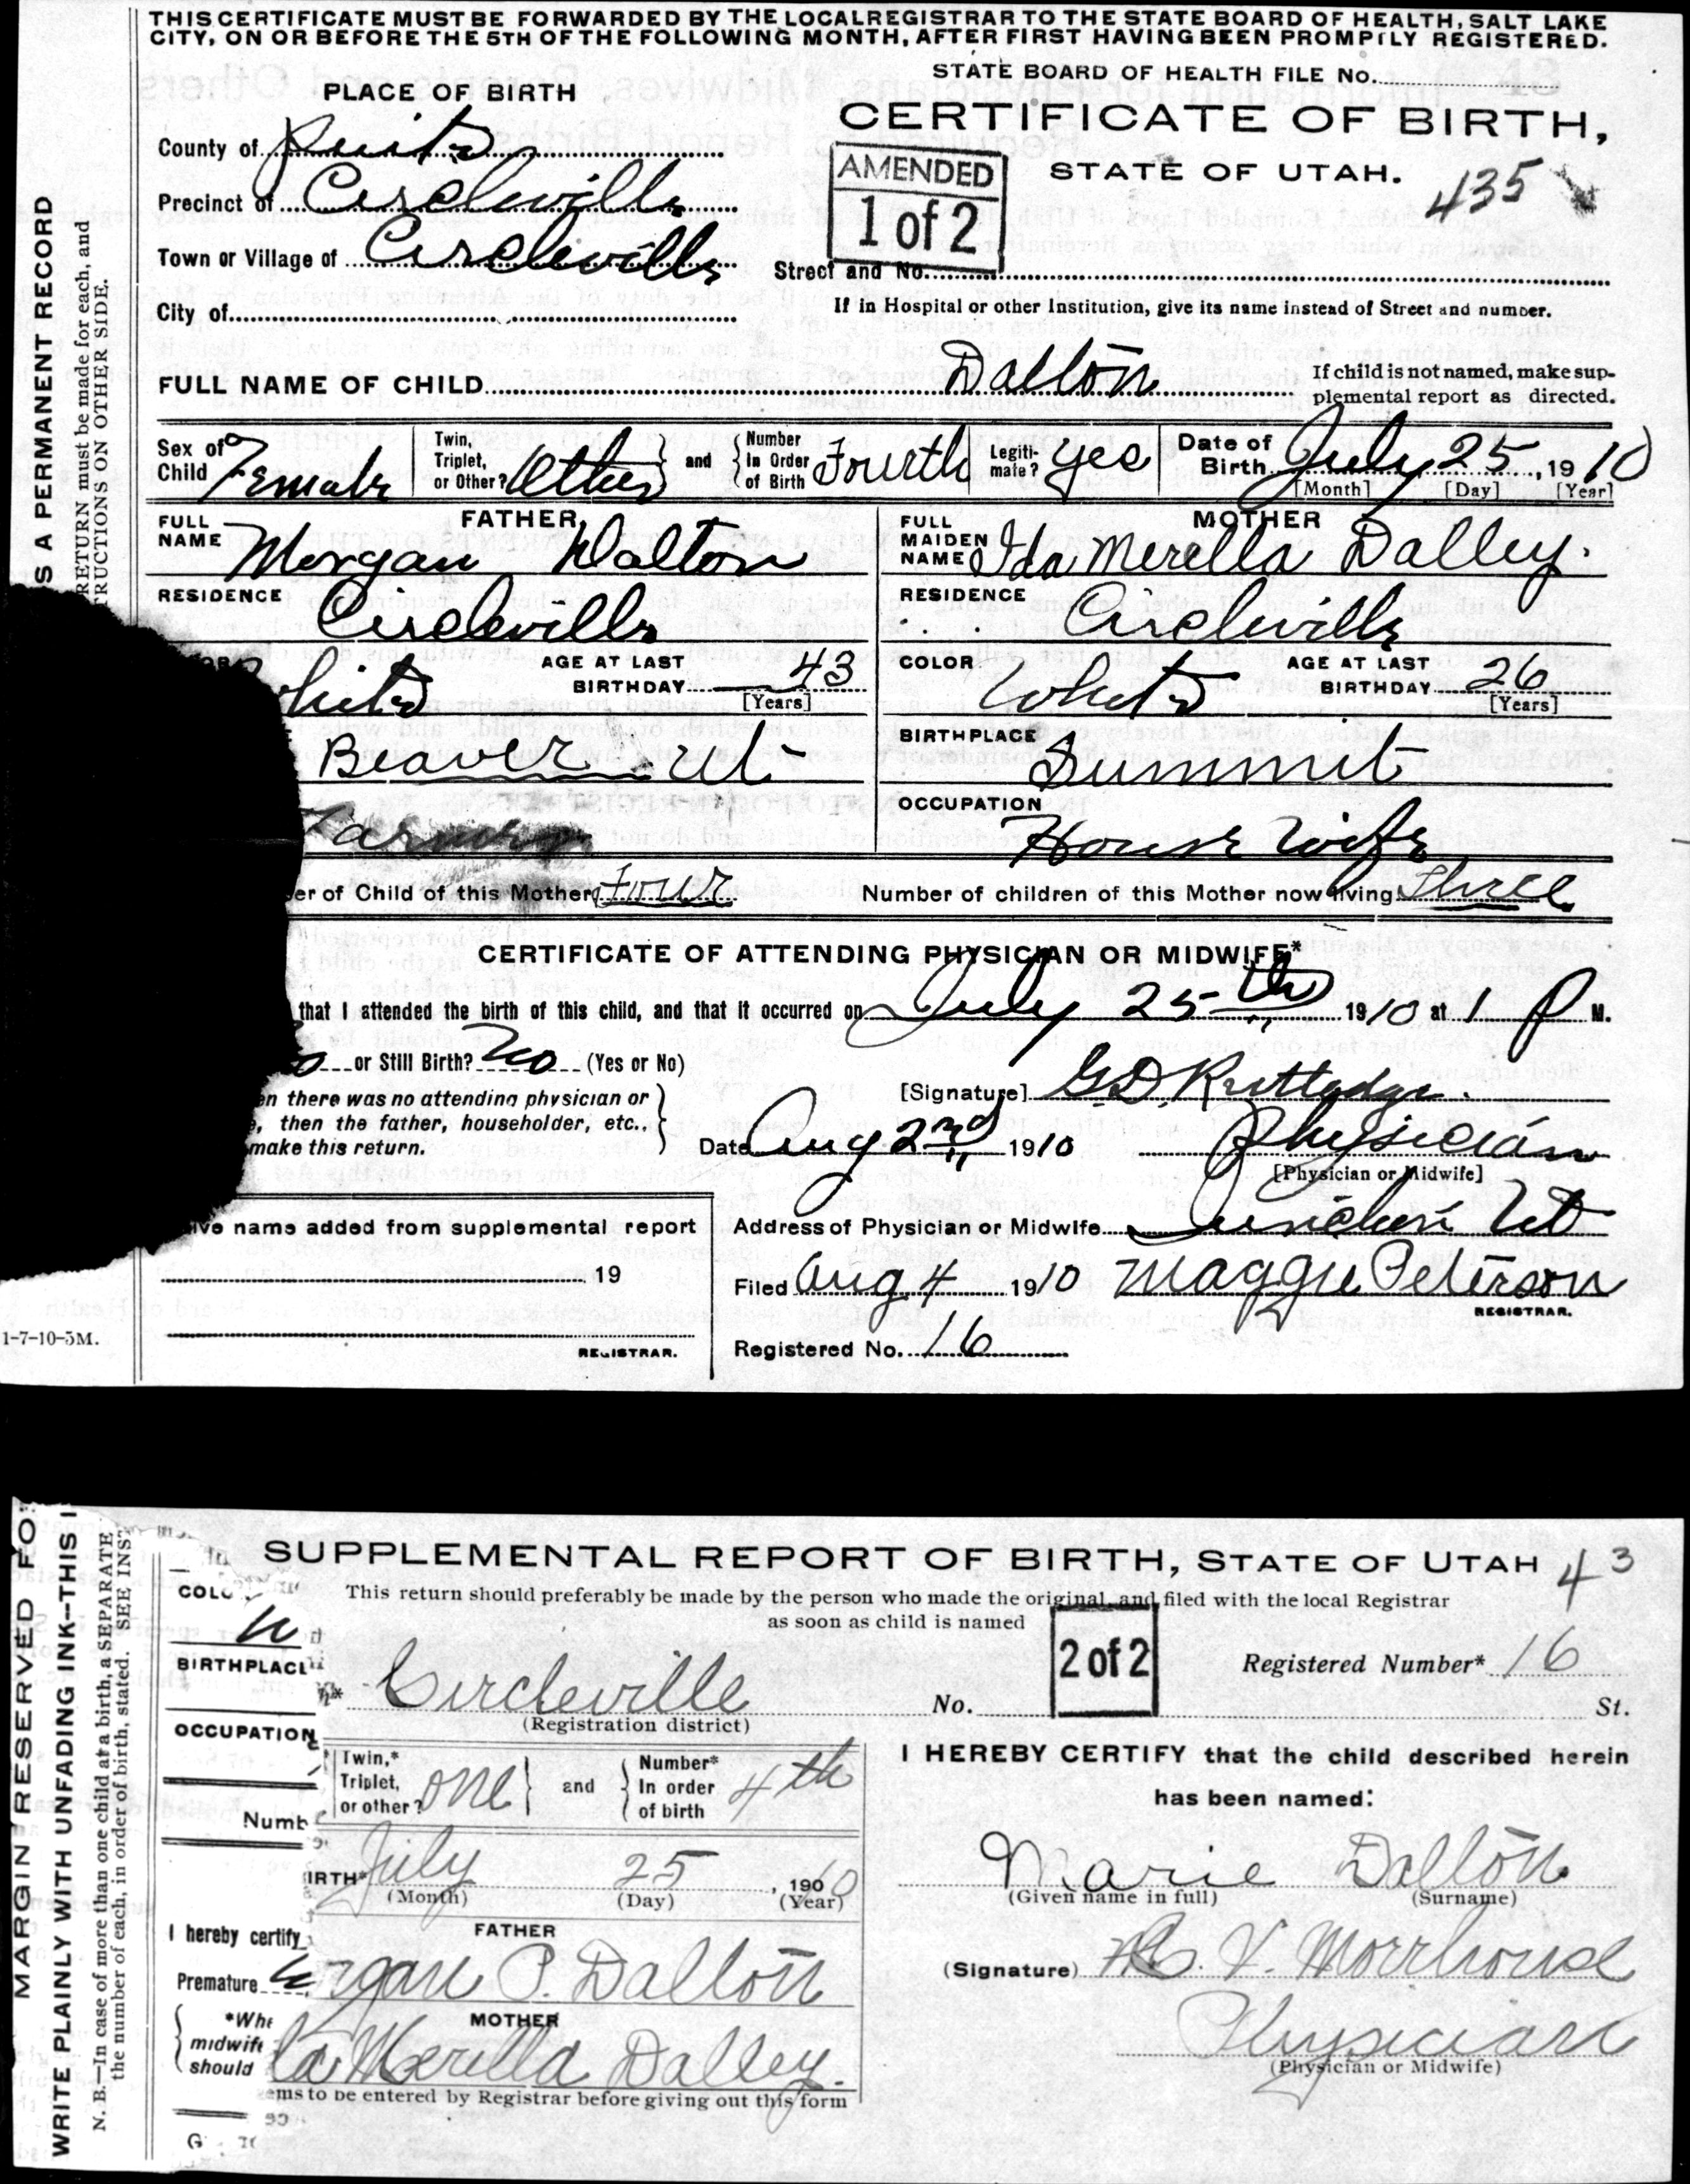 THIS CERTIFICATE MUST BE FORWARDED BY THE LOCAL REGISTRAR TO THE STATE BOARD OF HEALTH, SALT LAKE
CITY, ON OR BEFORE THE 5TH OF THE FOLLOWING MONTH, AFTER FIRST HAVING BEEN PROMPTLY REGISTERED.
STATE BOARD OF HEALTH FILE No.
PLACE OF BIRTH
CERTIFICATE OF BIRTH,
STATE OF UTAH.
435
AMENDED
1 of 2
County of Puite
Precinct of Circleville
Town or Village of Circleville
Street and No.
City of
If in Hospital or other Institution, give its name instead of Street and number.
FULL NAME OF CHILD Dalton
If child is not named, make sup-
plemental report as directed.
Sex of Child Female
Twin, Triplet, or Other? Other and Number In Order of Birth Fourth
Legiti-mate? Yes
Date of Birth July 25, 1910
[Month] [Day] [Year]
FATHER
FULL NAME Morgan Dalton
MOTHER
FULL MAIDEN NAME Ida Merella Dalley.
RESIDENCE Circleville
RESIDENCE Circleville
White
AGE AT LAST BIRTHDAY 43
[Years]
COLOR White
AGE AT LAST BIRTHDAY 26
[Years]
Beaver Ut
BIRTHPLACE Summit
Farmer
OCCUPATION House Wife
er of Child of this Mother Four
Number of children of this Mother now living Three
CERTIFICATE OF ATTENDING PHYSICIAN OR MIDWIFE*
that I attended the birth of this child, and that it occurred on July 25th 1910 at 1 P M.
or Still Birth? No (Yes or No)
en there was no attending physician or
e, then the father, householder, etc.,
make this return.
[Signature] G.D. Ruttledge.
Date Aug 2nd 1910
Physician
[Physician or Midwife]
ve name added from supplemental report
19
REGISTRAR.
Address of Physician or Midwife Junction Ut
Filed Aug 4 1910 Maggie Peterson
REGISTRAR.
Registered No. 16
1-7-10-5M.
S A PERMANENT RECORD
RETURN must be made for each, and
TRUCTIONS ON OTHER SIDE.
SUPPLEMENTAL REPORT OF BIRTH, STATE OF UTAH
43
This return should preferably be made by the person who made the original, and filed with the local Registrar
as soon as child is named
2 of 2
Registered Number* 16
Circleville
(Registration district)
No.
St.
COLO
W
BIRTHPLACE
OCCUPATION
Numb
Twin,* Triplet, or other? One and Number* In order of birth 4th
IRTH* July 25, 1910
(Month) (Day) (Year)
I hereby certify
Premature
*Whe
midwife
should
FATHER
rgan P. Dalton
MOTHER
da Merella Dalley.
ems to be entered by Registrar before giving out this form
I HEREBY CERTIFY that the child described herein
has been named:
Marie Dalton
(Given name in full) (Surname)
(Signature) V. Morrhouse
Physician
(Physician or Midwife)
MARGIN RESERVED FO
WRITE PLAINLY WITH UNFADING INK--THIS I
N. B.--In case of more than one child at a birth, a SEPARATE
the number of each, in order of birth, stated. SEE INST